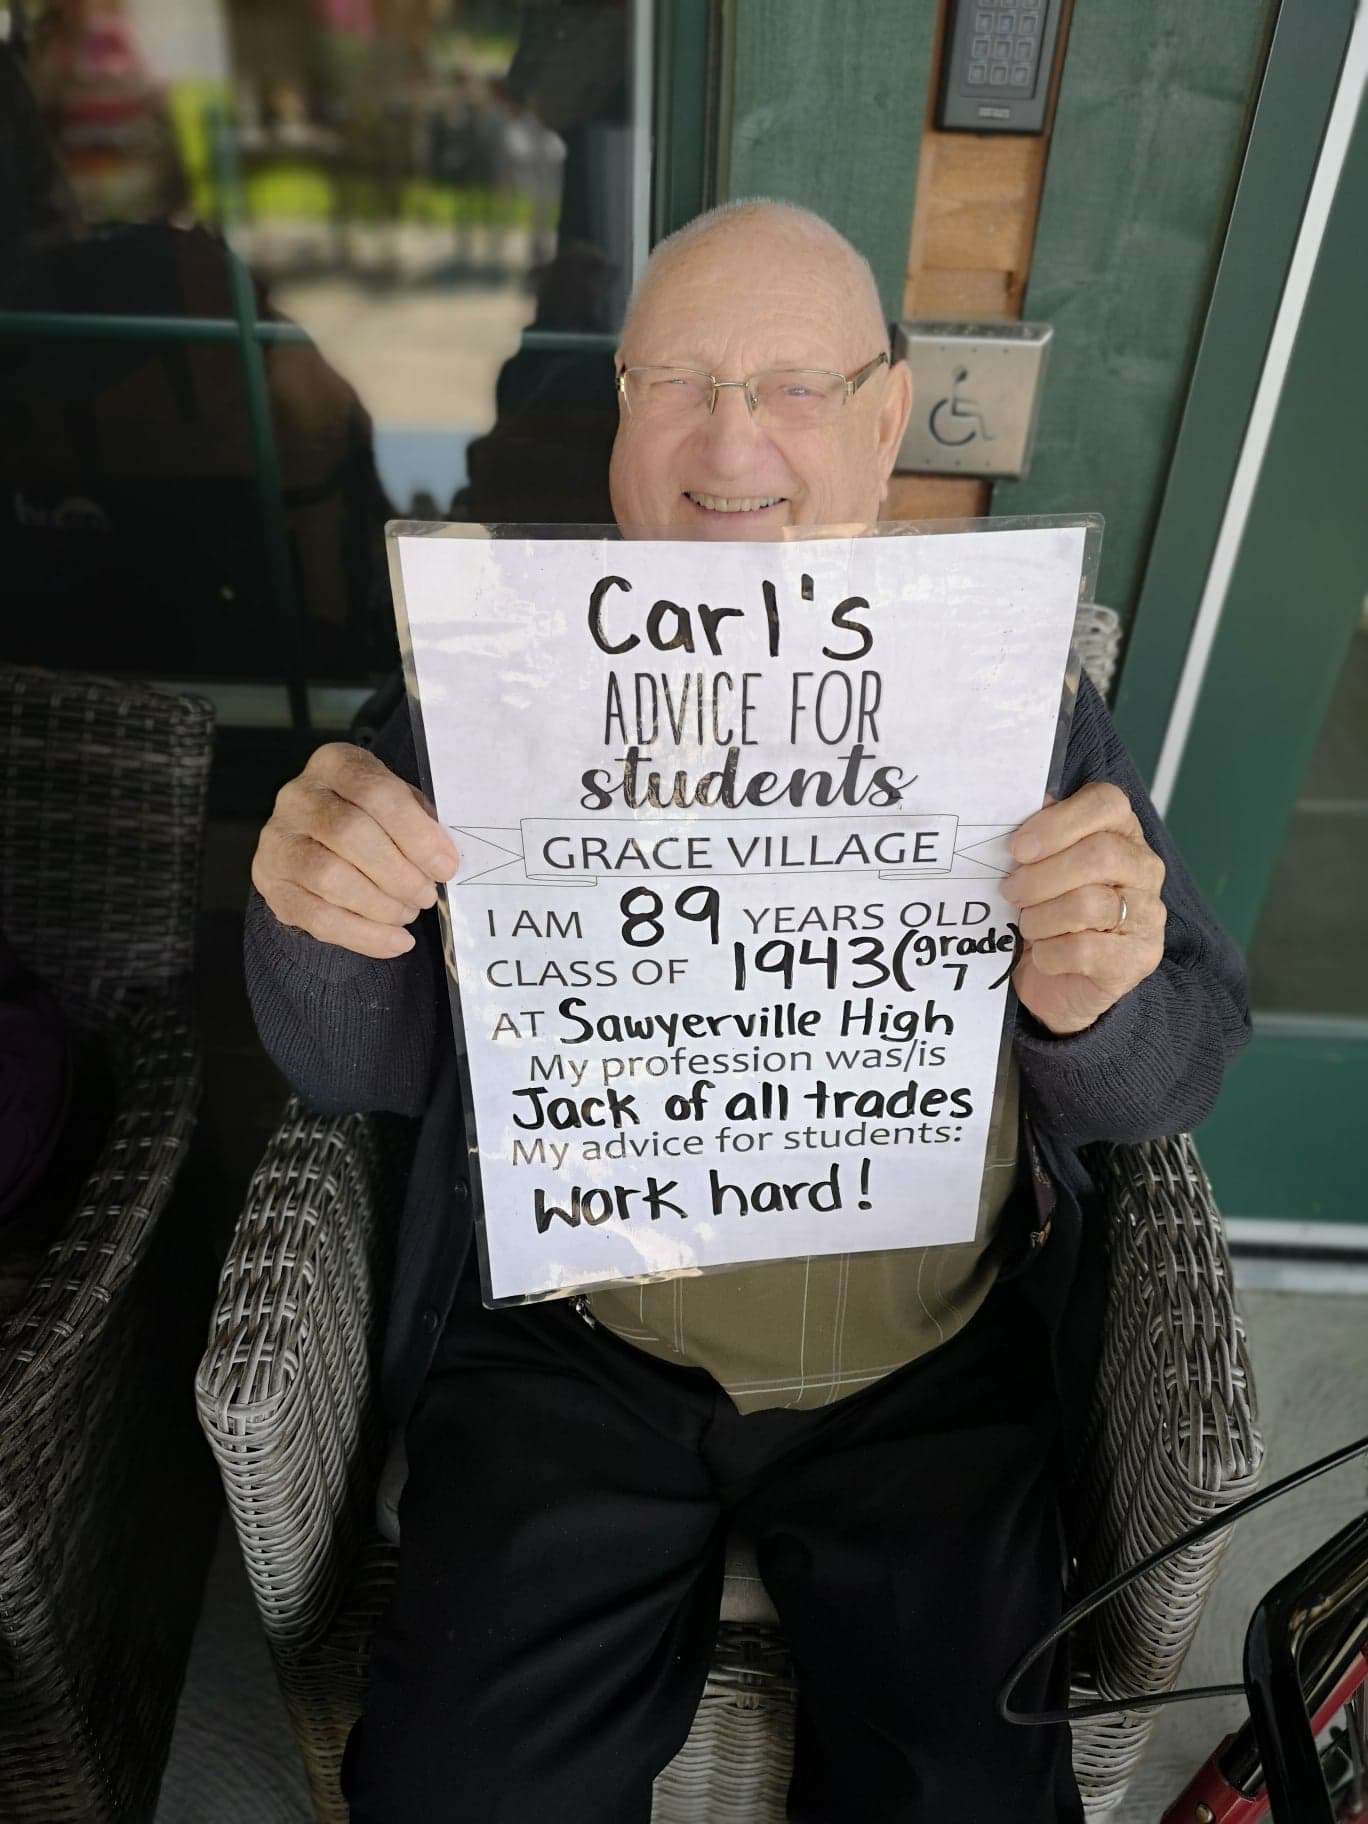 Carl's
ADVICE FOR
students
GRACE VILLAGE
I AM 89 YEARS OLD
CLASS OF 1943 (grade 7)
AT Sawyerville High
My profession was/is
Jack of all trades
My advice for students:
work hard!